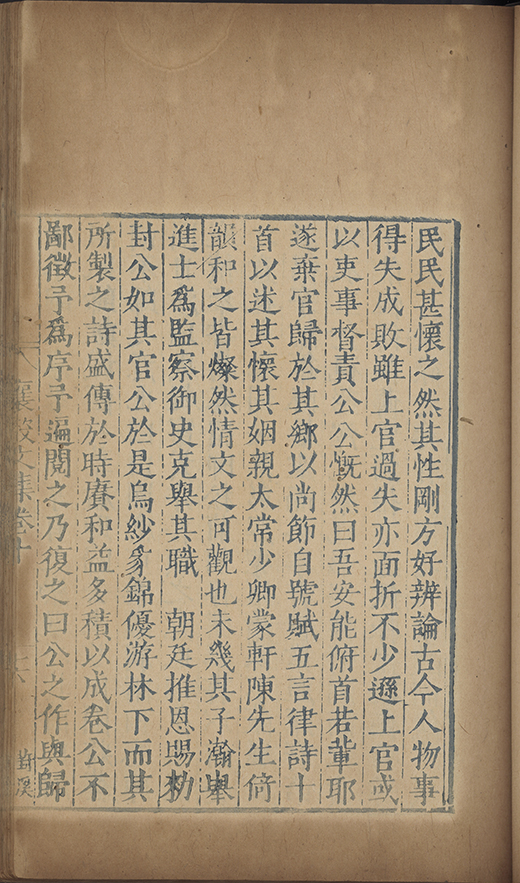 民民甚懷之然其性剛方好辨論古今人物事
得失成敗雖上官過失亦面折不少遜上官或
以吏事督責公公慨然曰吾安能俯首若輩耶
遂棄官歸於其鄉以尚節自號賦五言律詩十
首以述其懷其姻親太常少卿蒙軒陳先生倚
韻和之皆燦然情文之可觀也未幾其子瀚舉
進士爲監察御史克舉其職　朝廷推恩賜勑
封公如其官公於是烏紗豸錦優游林下而其
所製之詩盛傳於時賡和益多積以成卷公不
鄙徵予爲序予遍閱之乃復之曰公之作與歸
襄毅文集卷十